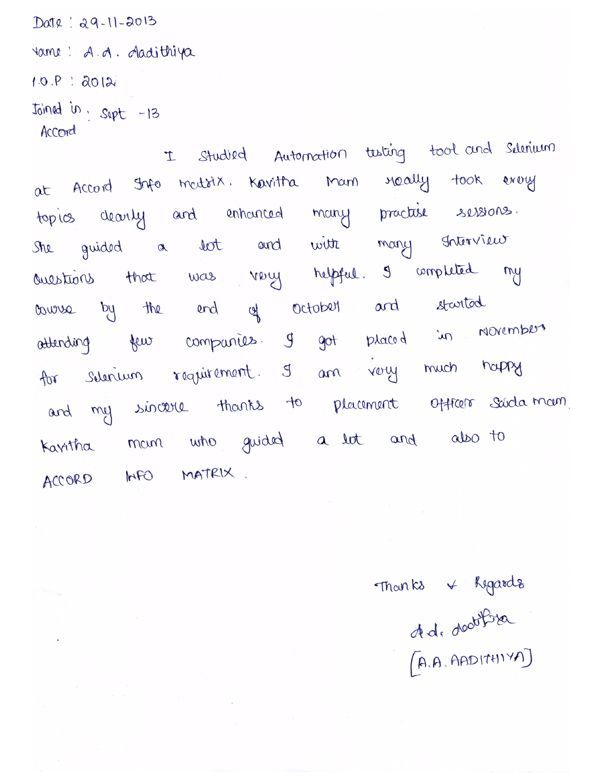 Date : 29-11-2013
Name : A.A. Aadithiya
Y.O.P : 2012
Joined in : Sept -13
Accord
I Studied Automation testing tool and Selenium
at Accord Info matrix. Kavitha Mam really took every
topics clearly and enhanced many practise sessions.
She guided a lot and with many Interview
Questions that was very helpful. I completed my
course by the end of October and started
attending few companies. I got placed in November
for Selenium requirement. I am very much happy
and my sincere thanks to placement Officer Saida mam,
Kavitha mam who guided a lot and also to
ACCORD INFO MATRIX.
Thanks & Regards
A.A. Aadithiya
[A.A. AADITHIYA]